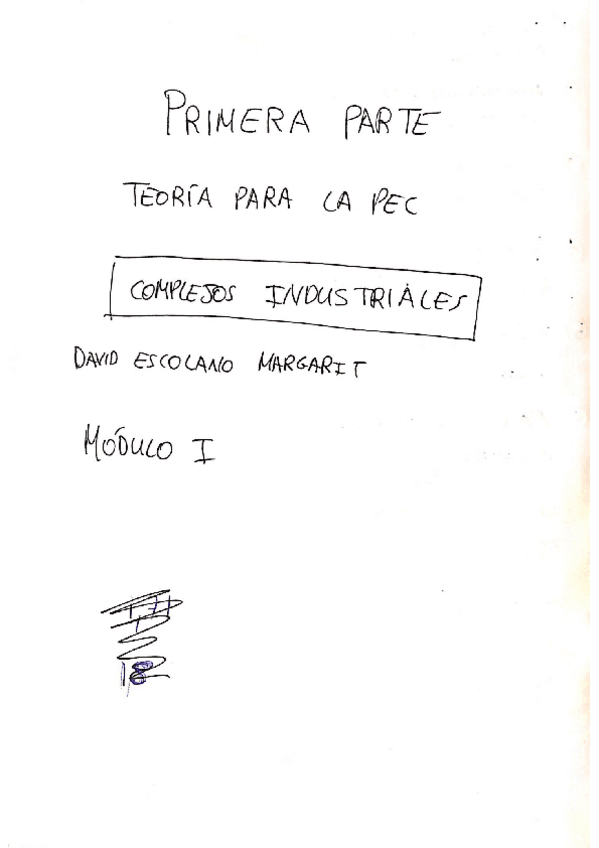 PRIMERA PARTE
TEORÍA PARA LA PEC
COMPLEJOS INDUSTRIALES
DAVID ESCOLANO MARGARIT
MÓDULO I